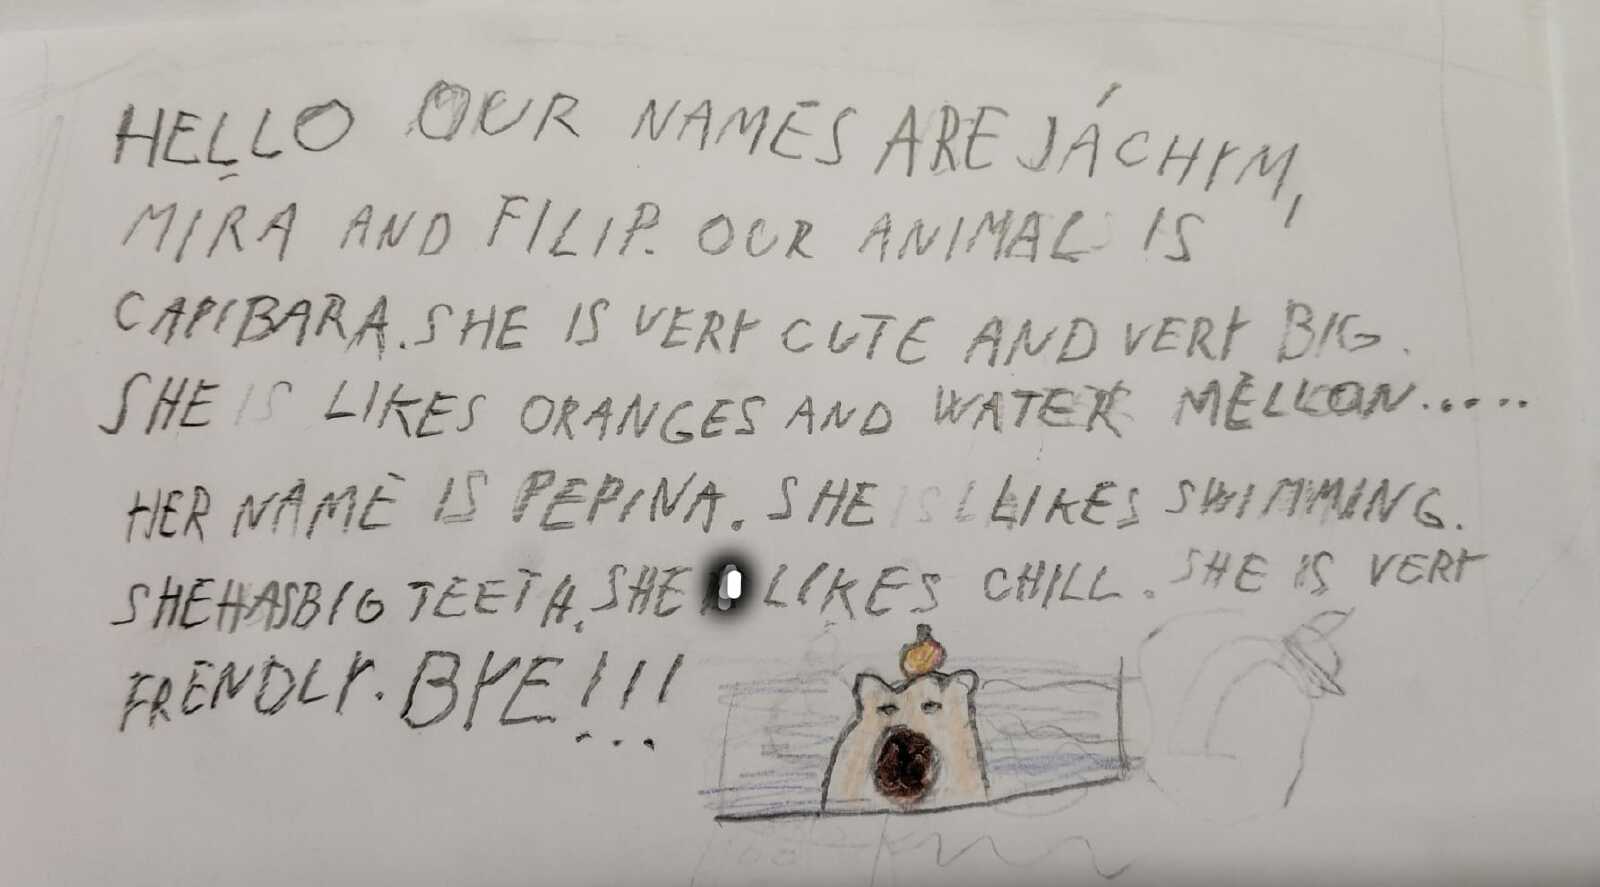 HELLO OUR NAMES ARE JÁCHYM,
MIRA AND FILIP. OUR ANIMAL IS
CAPIBARA. SHE IS VERY CUTE AND VERY BIG.
SHE IS LIKES ORANGES AND WATER MELLON.....
HER NAME IS PEPINA. SHE IS LIKES SWIMMING.
SHE HAS BIG TEETH. SHE LIKES CHILL. SHE IS VERY
FRENDLY. BYE!!!